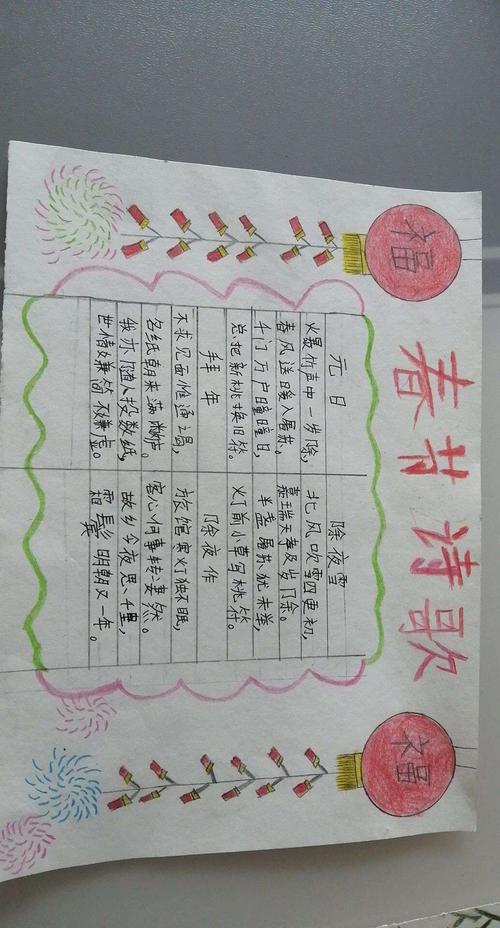 福
春节诗歌
福
元日
爆竹声中一岁除,
春风送暖入屠苏。
千门万户曈曈日,
总把新桃换旧符。
拜年
不求见面惟通谒,
名纸朝来满敝庐。
我亦随人投数纸,
世情嫌简不嫌虚。
除夜雪
北风吹雪四更初,
嘉瑞天教及岁除。
半盏屠苏犹未举,
灯前小草写桃符。
除夜作
旅馆寒灯独不眠,
客心何事转凄然。
故乡今夜思千里,
霜鬓明朝又一年。